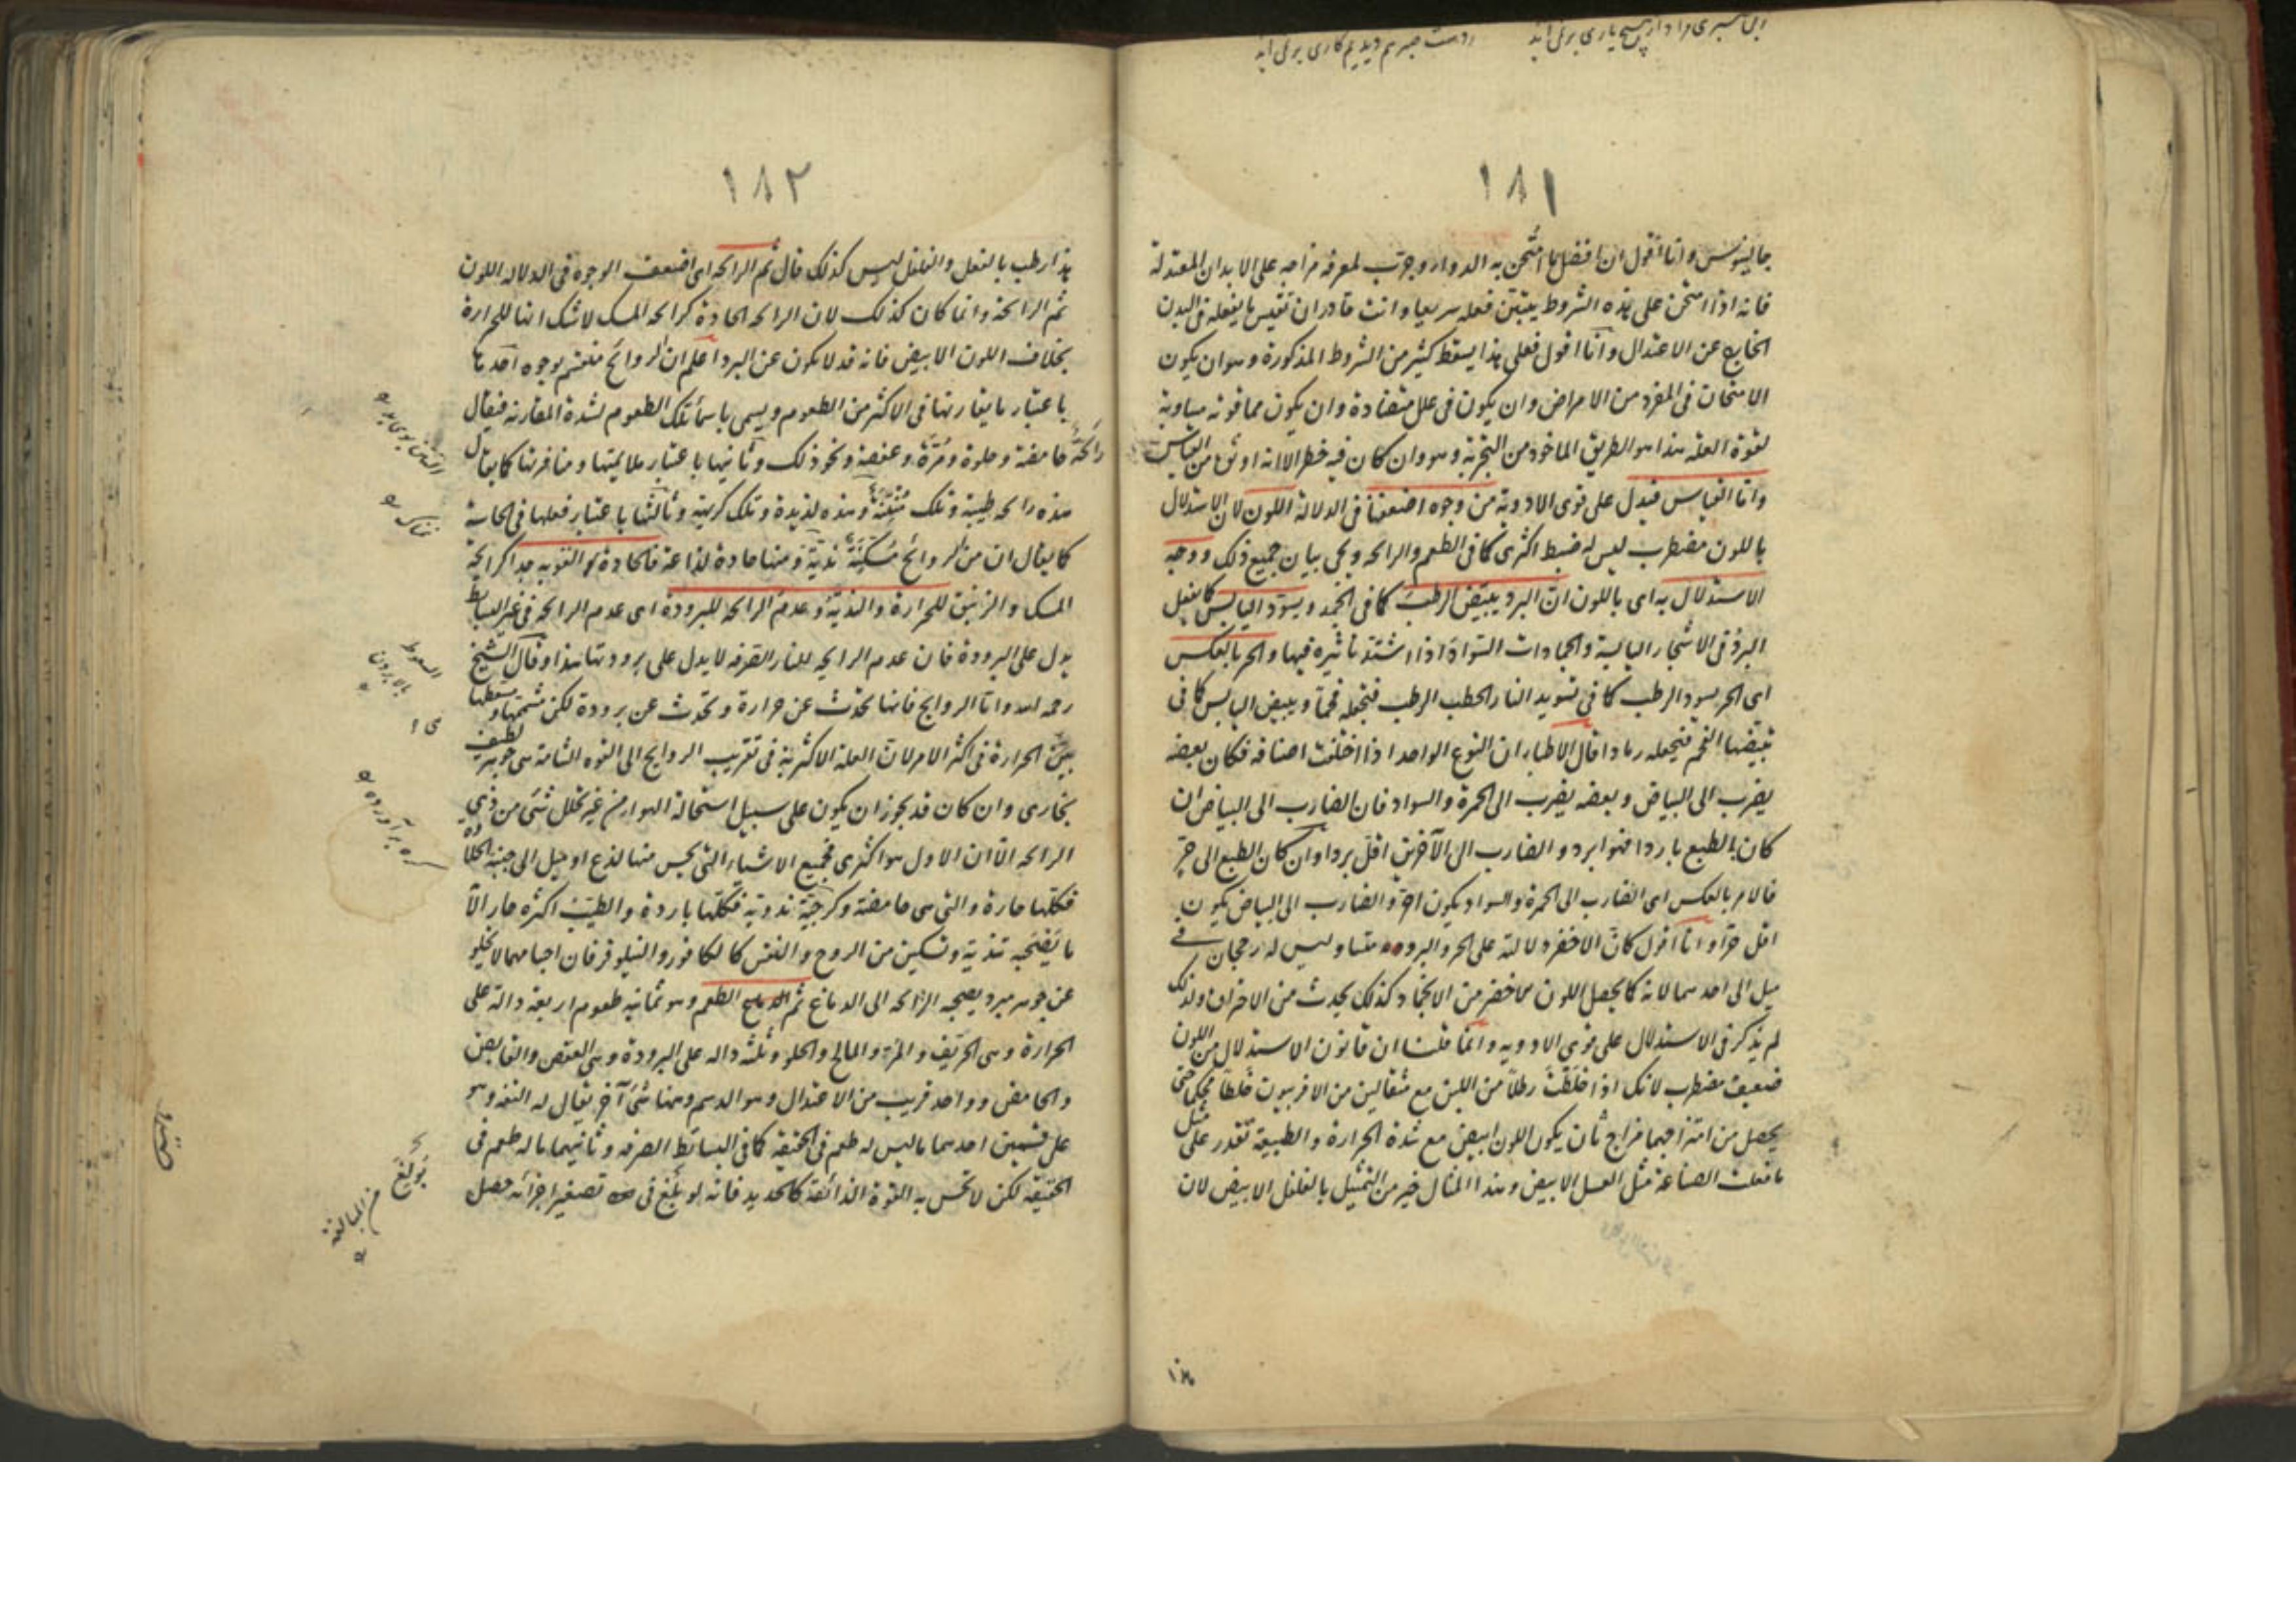 ١٨١
جالينوس وانا اقول ان افضل ما امتحن به الدواء وجرب لمعرفة مزاجه على الابدان المعتدلة
فانه اذا امتحن على هذه الشروط يتبين فعله سريعا وانت قادر ان تقيس ما يفعله فى البدن
الخارج عن الاعتدال وانا اقول فعلى هذا يسقط كثير من الشروط المذكورة وهو ان يكون
الامتحان فى المفرد من الامراض وان يكون فى علل متضادة وان يكون مما قوته مساوية
لقوة العلة هذا هو الطريق الماخوذ من التجربة وهو وان كان فيه خطر الا انه اوثق من القياس
واما القياس فيدل على قوى الادوية من وجوه اضعفها فى الدلالة اللون لان الاستدلال
باللون مضطرب ليس له ضبط اكثرى كما فى الطعم والرائحه ويجى بيان جميع ذلك ووجه
الاستدلال به اى باللون ان البرد يبيض الرطب كما فى الجمد ويسود اليابس كما يفعل
البرد فى الاشجار اليابسة والجمادات السواد اذا اشتد تاثيره فيها والحر بالعكس
اى الحر يسود الرطب كما فى تسويد النار الحطب الرطب فتجعله فحما ويبيض اليابس كما فى
تبييضها الفحم فيجعله رمادا قال الاطباء ان النوع الواحد اذا اختلفت اصنافه فكان بعضه
يضرب الى البياض وبعضه يضرب الى الحمرة والسواد فان الضارب الى البياض ان
كان الطبع باردا فهو ابرد والضارب الى الآخرين اقل بردا وان كان الطبع الى حر
فالامر بالعكس اى الضارب الى الحمرة والسواد يكون احر والضارب الى البياض يكون
اقل حرا وانا اقول كان الاخضر دلالته على الحر والبرودة متساو ليس له رجحان فى
ميل الى احدهما لانه كما يحصل اللون الاخضر من الانجماد كذلك يحدث من الاحتراق ولذلك
لم يذكر فى الاستدلال على قوى الادويه وانما قلنا ان قانون الاستدلال من اللون
ضعيف مضطرب لانك اذا خلطت رطلا من اللبن مع مثقالين من الافربيون خلطا محكما حتى
يحصل من امتزاجهما مزاج ثان يكون اللون ابيض مع شدة الحرارة والطبيعة تقدر على مثل
ما فعلت الصناعة مثل العسل الابيض وهذا المثال خير من التمثيل بالفلفل الابيض لان
١٨٢
هذا رطب بالفعل والفلفل ليس كذلك قال ثم الرائحه اى اضعف الوجوه فى الدلاله اللون
ثم الرائحة وانما كان كذلك لان الرائحه الحادة كرائحه المسك لاشك انها للحرارة
بخلاف اللون الابيض فانه قد لا يكون عن البرد اعلم ان الروائح منقسم بوجوه احدها
باعتبار ما يقارنها فى الاكثر من الطعوم ويسمى باسماء تلك الطعوم لشدة المقارنه فيقال
رائحة حامضة وحلوة ومرة وعفصة ونحو ذلك وثانيها باعتبار ملايمتها ومنافرتها كما يقال
هذه رائحه طيبة وتلك منتنة وهذه لذيذة وتلك كريهة وثالثها باعتبار فعلها فى الحاسة
كما يقال ان من الروائح مسكنة ندية ومنها حادة لذاعة فالحادة القويه جدا كرائحة
المسك والزنبق للحرارة والندية وعدم الرائحه للبرودة اى عدم الرائحه فى غير البسائط
يدل على البرودة فان عدم الرائحه للنار الصرفه لا يدل على برودتها هذا وقال الشيخ
رحمه الله واما الروايح فانها تحدث عن حرارة وتحدث عن برودة لكن مشممها ومسعطها
هى الحرارة فى اكثر الامر لان العلة الاكثرية فى تقريب الروايح الى القوه الشامة هى جوهر لطيف
بخارى وان كان قد يجوز ان يكون على سبيل استحالة الهواء من غير تحلل شئ من ذى
الرائحه الا ان الاول هو اكثرى فجميع الاشياء التى يحس منها لذع او ميل الى جنبة الحلاوة
فكلها حارة والتى هى حامضة وكرجية ندوية فكلها باردة والطيب اكثره حار الا
ما يصحبه تندية وتسكين من الروح والنفس كالكافور والنيلوفر فان اجسامهما لا تخلو
عن جوهر مبرد يصحبه الرائحه الى الدماغ ثم الطعم وهو ثمانيه طعوم اربعة دالة على
الحرارة وهى الحريف والمر والمالح والحلو وثلثه داله على البرودة وهى العفص والقابض
والحامض وواحد قريب من الاعتدال وهو الدسم وهنا شئ آخر يقال له التفه وهو
على قسمين احدهما ما ليس له طعم فى الحقيقه كما فى البسائط الصرفه وثانيهما ما له طعم فى
الحقيقه لكن لا تحس به القوة الذائقة كالحديد فانه لو بلغ فى تصغير اجزائه حصل
نمناك
السعوط
بولغ
من المبالغة